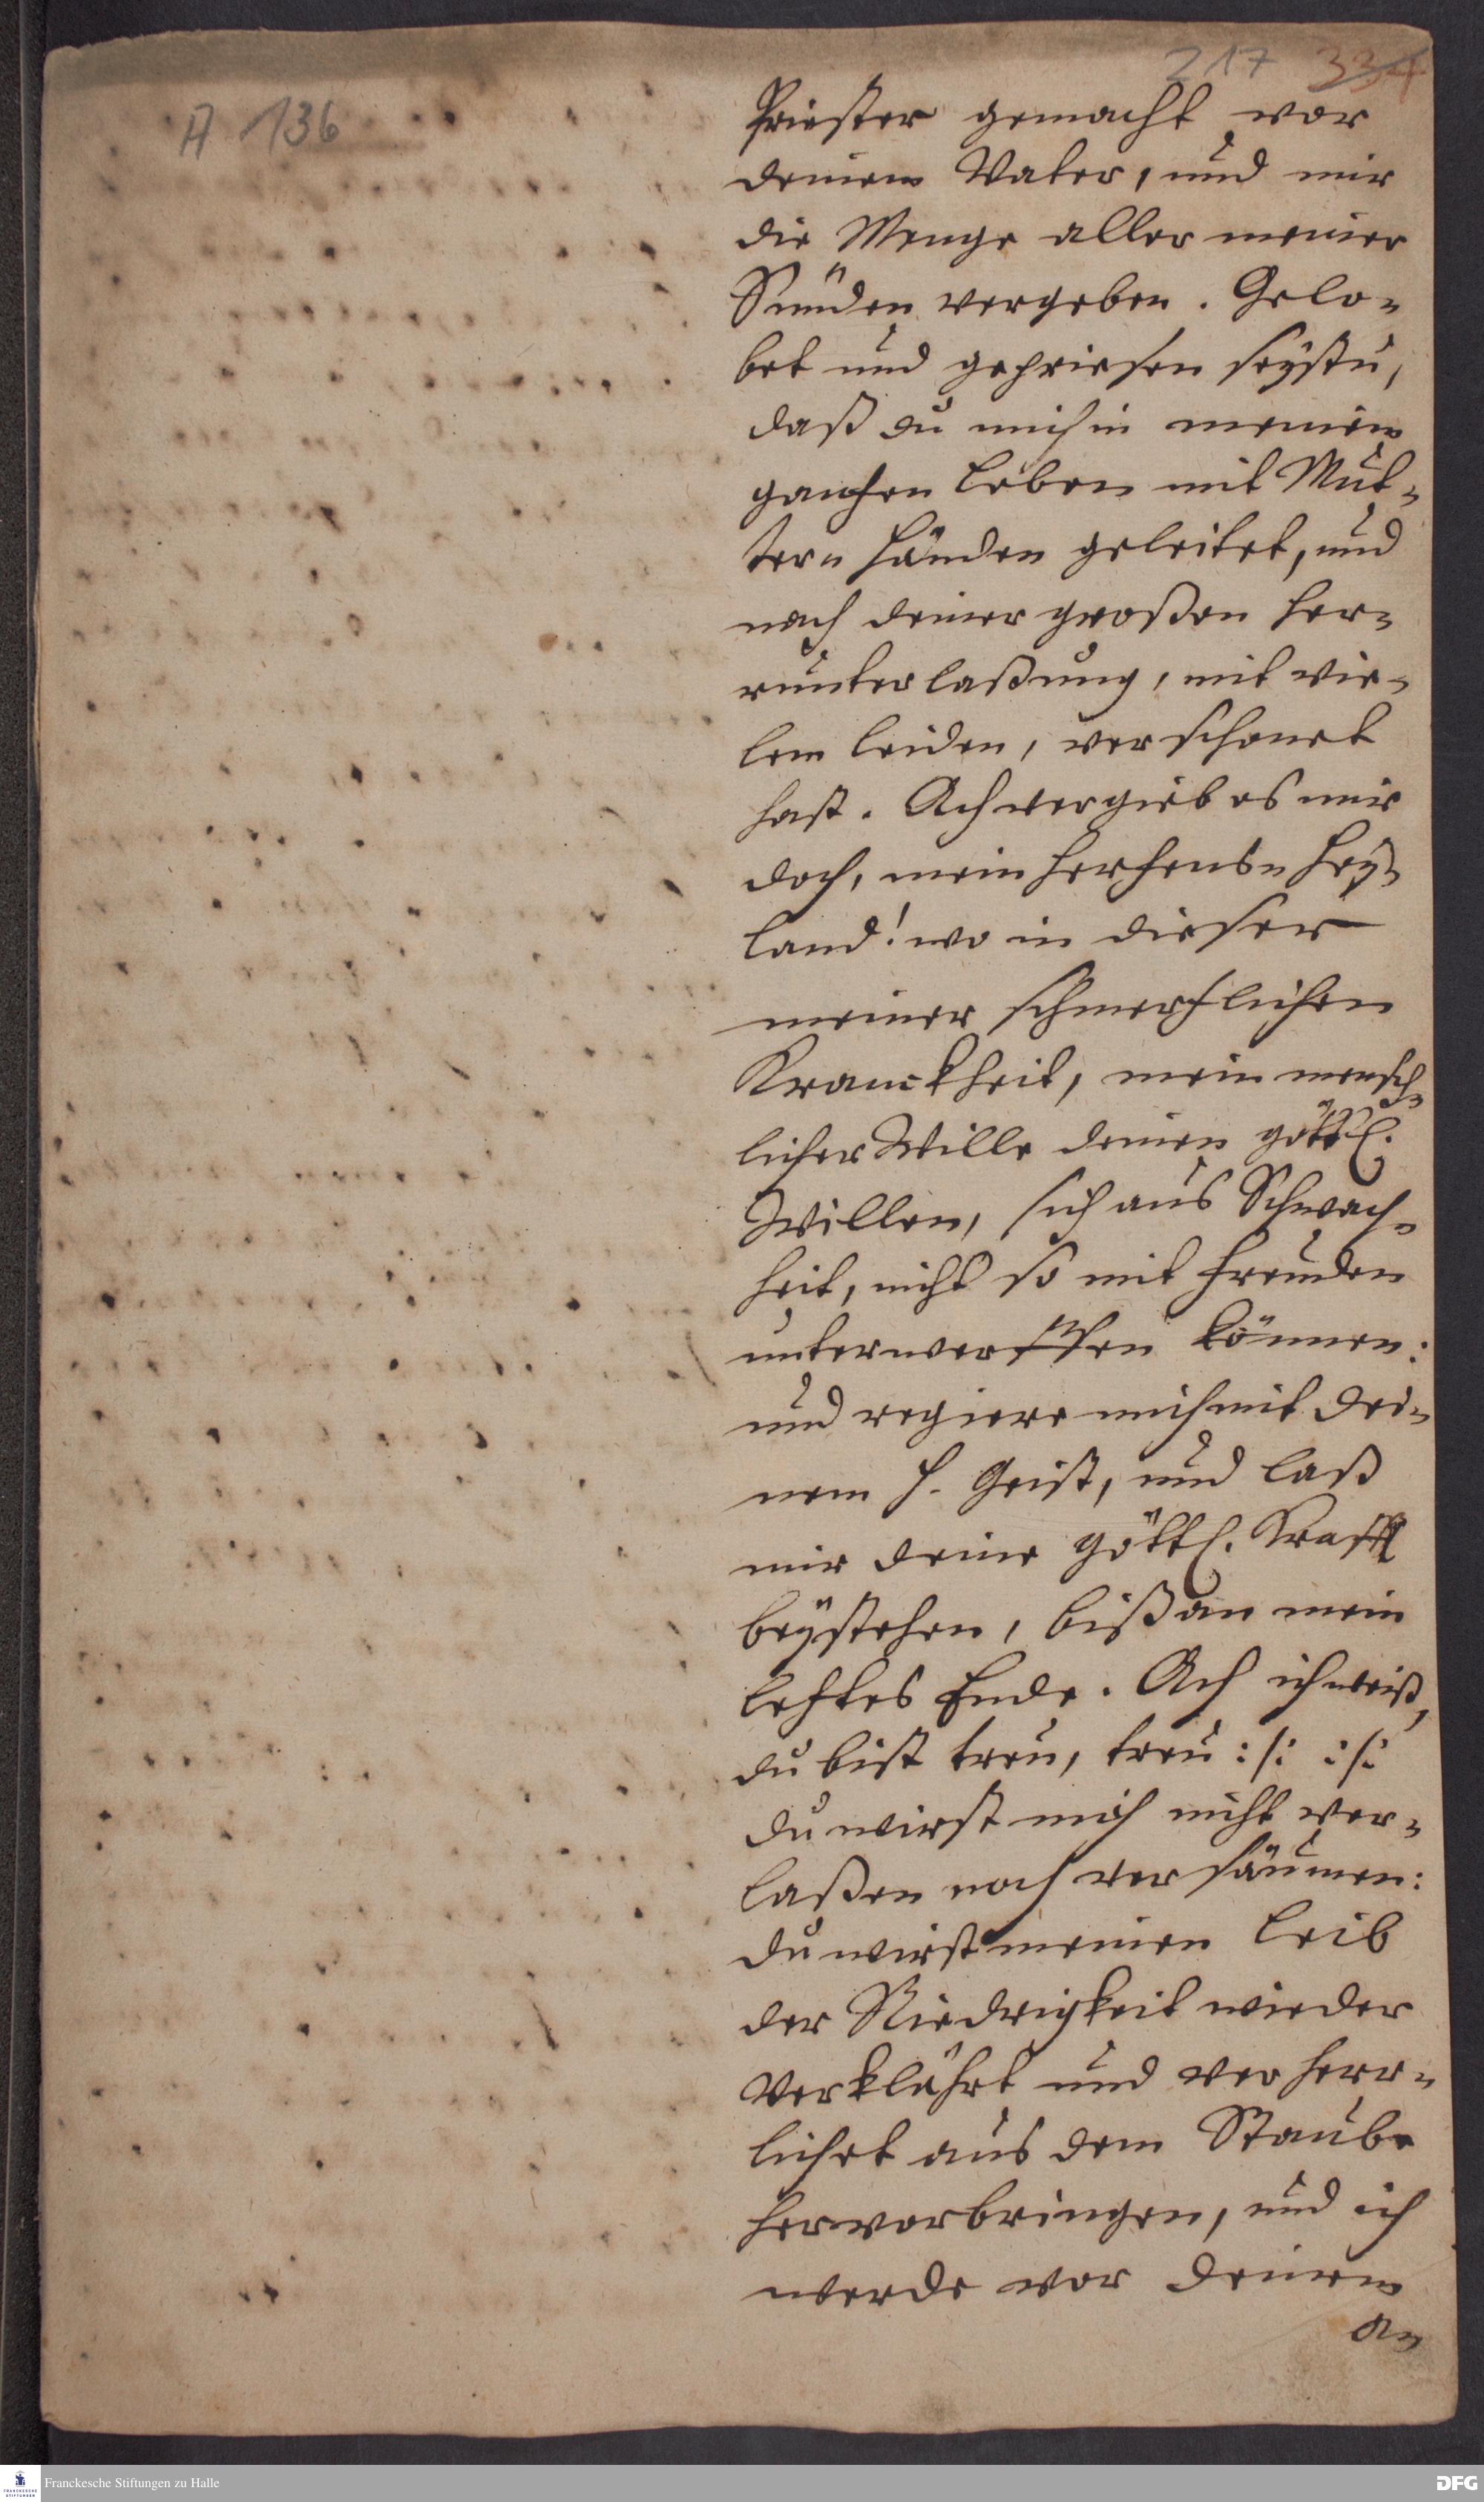 217 334
A 136
Priester gemacht vor
deinem Vater, und mir
die Menge aller meiner
Sünden vergeben. Gelo-
bet und gepriesen seÿstu,
daß du mich in meinem
gantzen Leben mit Mut-
ter-Händen geleitet, und
nach deiner großen Her-
runterlaßung, mit vie-
lem leiden, verschonet
hast. Ach vergieb es mir
doch, mein Hertzens-Heÿ-
land! wo in dieser
meiner schmertzlichen
Kranckheit, mein mensch-
licher Wille deinen göttl.
Willen, sich aus Schwach-
heit, nicht so mit Freuden
unterwerffen können:
und regiere mich mit dei-
nem H. Geist, und laß
mir deine göttl. Krafft
beÿstehen, biß an mein
letztes Ende. Ach ich weiß,
du bist treu, treu :/: :/:
du wirst mich nicht ver-
laßen noch versäumen:
du wirst meinen Leib
der Niedrigkeit wieder
verklährt und verherr-
lichet aus dem Staube
hervorbringen, und ich
werde vor deinem
An-
Franckesche Stiftungen zu Halle
DFG